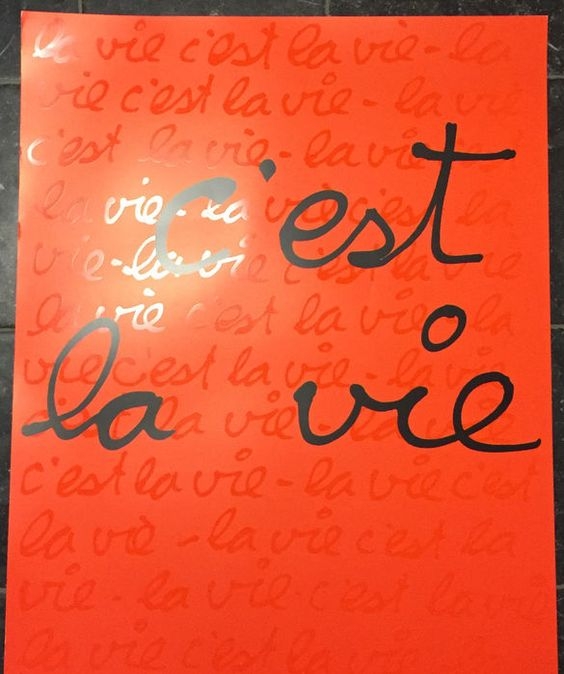 la vie c'est la vie - la
vie c'est la vie - la vie
c'est la vie - la vie
c'est
la vie - la vie c'est la
vie - la vie c'est la vie
la vie c'est la vie la
la vie
vie c'est la vie - la vie
c'est la vie - la vie
c'est la vie - la vie c'est
la vie - la vie c'est la
vie - la vie c'est la vie
la vie c'est la vie - la